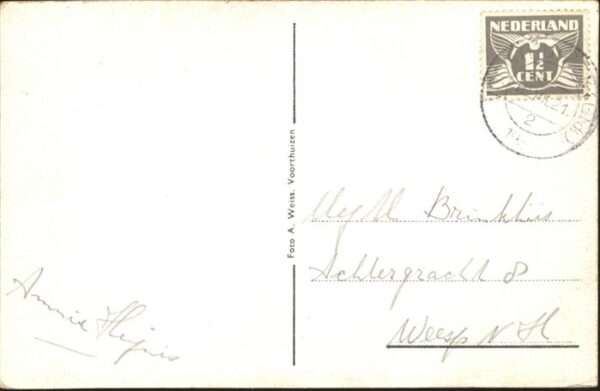 NEDERLAND
1½
CENT
Foto A. Weiss. Voorthuizen
Brinkhuis
Achtergracht 8
Weesp N H
Annie Heijnis